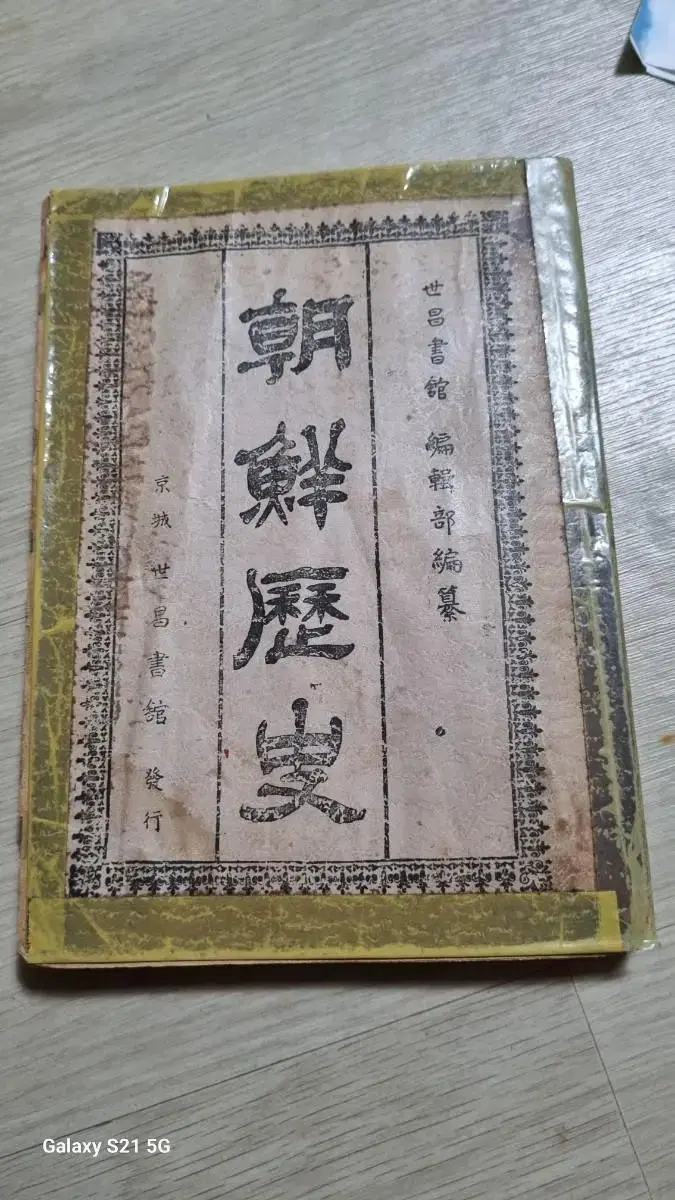 世昌書館 編輯部編纂
朝鮮歷史
京城 世昌書館 發行
Galaxy S21 5G